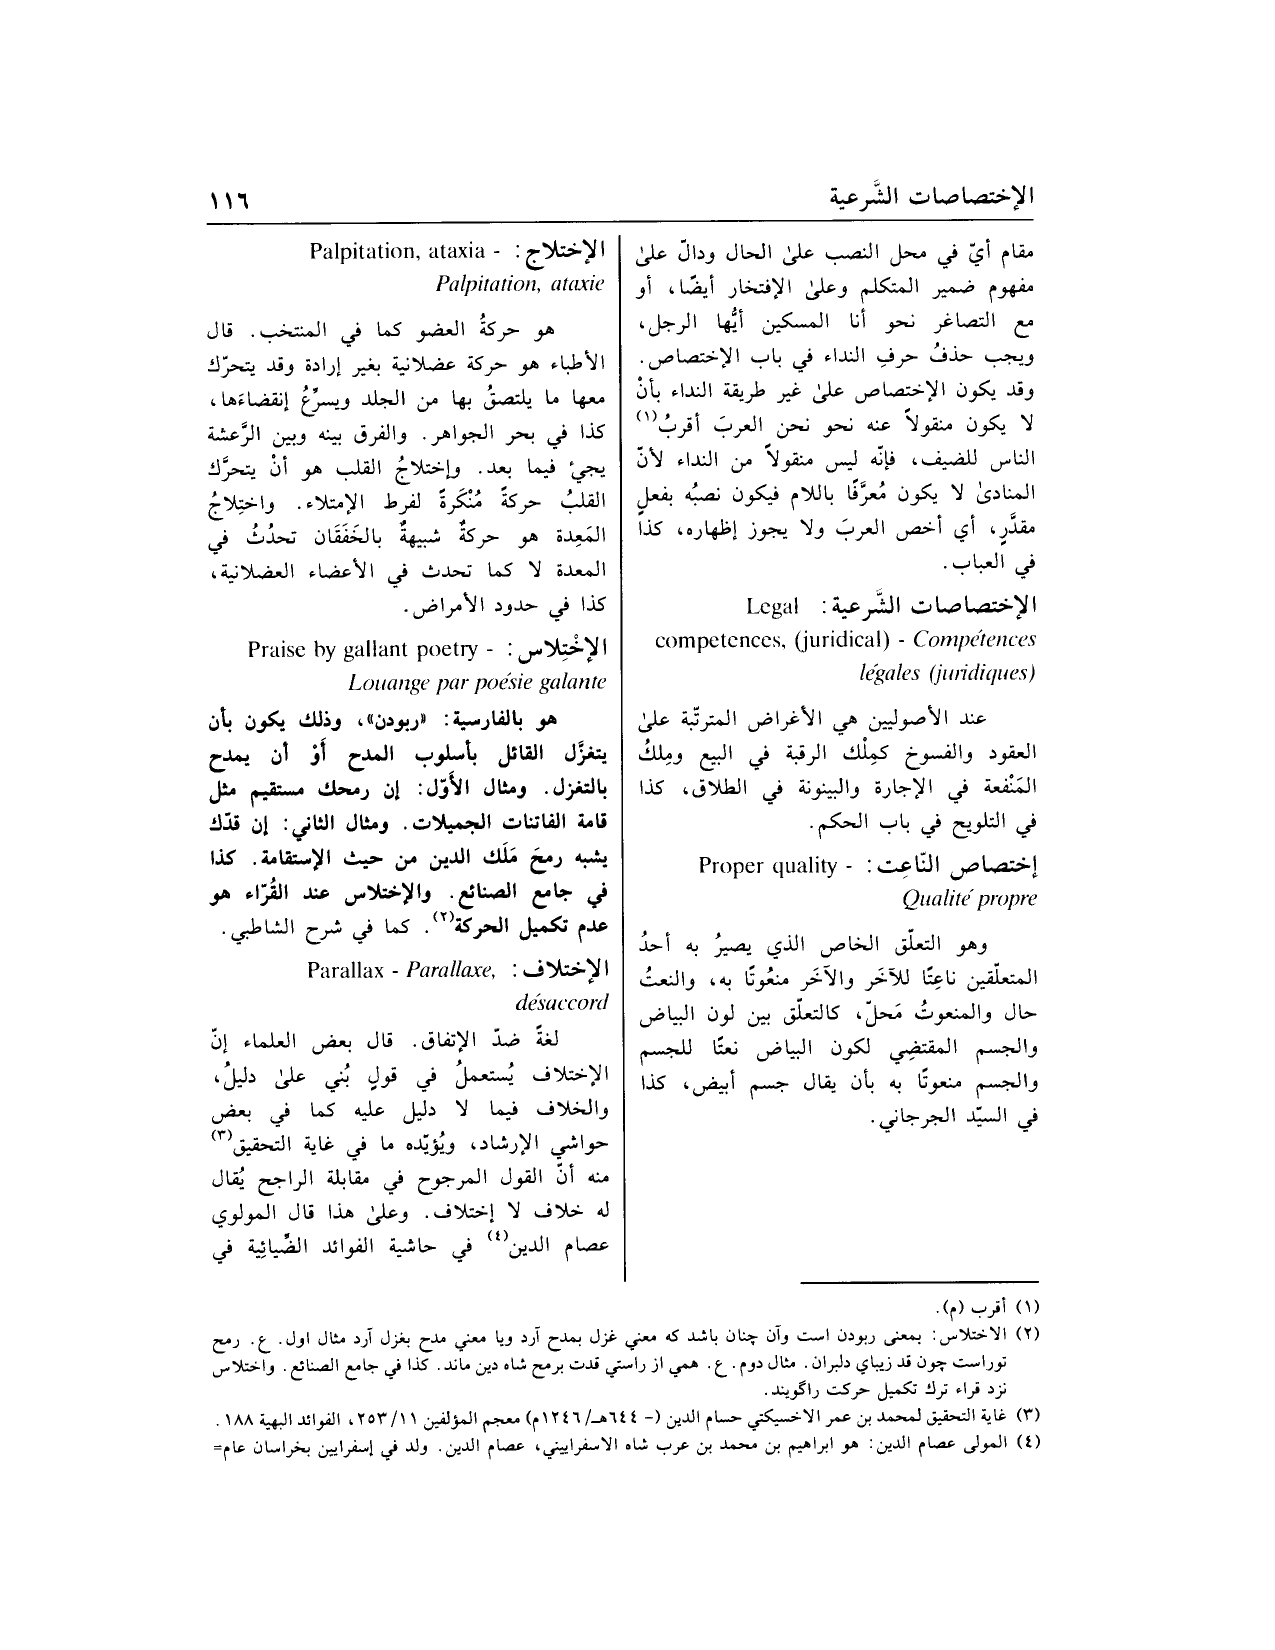 الإختصاصات الشَّرعية
١١٦
مقام أيّ في محل النصب علىٰ الحال ودالّ علىٰ
مفهوم ضمير المتكلم وعلىٰ الإفتخار أيضًا، أو
مع التصاغر نحو أنا المسكين أيُّها الرجل،
ويجب حذفُ حرفِ النداء في باب الإختصاص.
وقد يكون الإختصاص علىٰ غير طريقة النداء بأنْ
لا يكون منقولاً عنه نحو نحن العربَ أقربُ(١)
الناس للضيف، فإنّه ليس منقولاً من النداء لأنّ
المنادىٰ لا يكون مُعرَّفًا باللام فيكون نصبُه بفعلٍ
مقدَّرٍ، أي أخص العربَ ولا يجوز إظهاره، كذا
في العباب.
الإختصاصات الشَّرعية: Legal
competences, (juridical) - Compétences
légales (juridiques)
عند الأصوليين هي الأغراض المترتّبة علىٰ
العقود والفسوخ كمِلْك الرقبة في البيع ومِلكُ
المَنْفعة في الإجارة والبينونة في الطلاق، كذا
في التلويح في باب الحكم.
إختصاص النّاعِت: Proper quality -
Qualité propre
وهو التعلّق الخاص الذي يصيرُ به أحدُ
المتعلّقين ناعِتًا للآخَر والآخَر منعُوتًا به، والنعتُ
حال والمنعوتُ مَحلّ، كالتعلّق بين لون البياض
والجسم المقتضِي لكون البياض نعتًا للجسم
والجسم منعوتًا به بأن يقال جسم أبيض، كذا
في السيّد الجرجاني.
الإختلاج: Palpitation, ataxia -
Palpitation, ataxie
هو حركةُ العضو كما في المنتخب. قال
الأطباء هو حركة عضلانية بغير إرادة وقد يتحرّك
معها ما يلتصقُ بها من الجلد ويسرِّعُ إنقضاءَها،
كذا في بحر الجواهر. والفرق بينه وبين الرَّعشة
يجيْ فيما بعد. وإختلاجُ القلب هو أنْ يتحرَّك
القلبُ حركةً مُنْكَرةً لفرط الإمتلاء. واختِلاجُ
المَعِدة هو حركةٌ شبيهةٌ بالخَفَقَان تحدُثُ في
المعدة لا كما تحدث في الأعضاء العضلانية،
كذا في حدود الأمراض.
الإخْتِلاس: Praise by gallant poetry -
Louange par poésie galante
هو بالفارسية: «ربودن»، وذلك يكون بأن
يتغزَّل القائل بأسلوب المدح أَوْ أن يمدح
بالتغزل. ومثال الأَوّل: إن رمحك مستقيم مثل
قامة الفاتنات الجميلات. ومثال الثاني: إن قدّك
يشبه رمحَ مَلَك الدين من حيث الإستقامة. كذا
في جامع الصنائع. والإختلاس عند القُرّاء هو
عدم تكميل الحركة(٢). كما في شرح الشاطبي.
الإختلاف: Parallax - Parallaxe,
désaccord
لغةً ضدّ الإتفاق. قال بعض العلماء إنّ
الإختلاف يُستعملُ في قولٍ بُني علىٰ دليلُ،
والخلاف فيما لا دليل عليه كما في بعض
حواشي الإرشاد، ويُؤيّده ما في غاية التحقيق(٣)
منه أنّ القول المرجوح في مقابلة الراجح يُقال
له خلاف لا إختلاف. وعلىٰ هذا قال المولوي
عصام الدين(٤) في حاشية الفوائد الضِّيائِية في
(١) أقرب (م).
(٢) الاختلاس: بمعنى ربودن است وآن چنان باشد كه معني غزل بمدح آرد ويا معني مدح بغزل آرد مثال اول. ع. رمح
توراست چون قد زيباي دلبران. مثال دوم. ع. همي از راستي قدت برمح شاه دين ماند. كذا في جامع الصنائع. واختلاس
نزد قراء ترك تكميل حركت راگويند.
(٣) غاية التحقيق لمحمد بن عمر الاخسيكتي حسام الدين (- ٦٤٤هـ/ ١٢٤٦م) معجم المؤلفين ١١/ ٢٥٣، الفوائد البهية ١٨٨.
(٤) المولى عصام الدين: هو ابراهيم بن محمد بن عرب شاه الاسفراييني، عصام الدين. ولد في إسفرايين بخراسان عام=